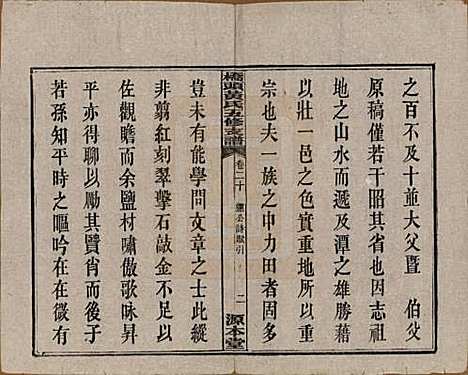 之百不及十並大父暨　伯父
原稿僅若干首其省也因志祖
地之山水而遞及潭之雄勝藉
以壯一邑之色實重地所以重
宗也夫一族之中力田者固多
橋頭黃氏五修支譜
卷二十
詩賦引
二
源本堂
豈未有能學問文章之士此縱
非翦紅刻翠擊石敲金不足以
佐觀瞻而余鹽材嘯傲歌咏昇
平亦得聊以其賢肖而俾後之
若孫知平時之嘔吟在在微有